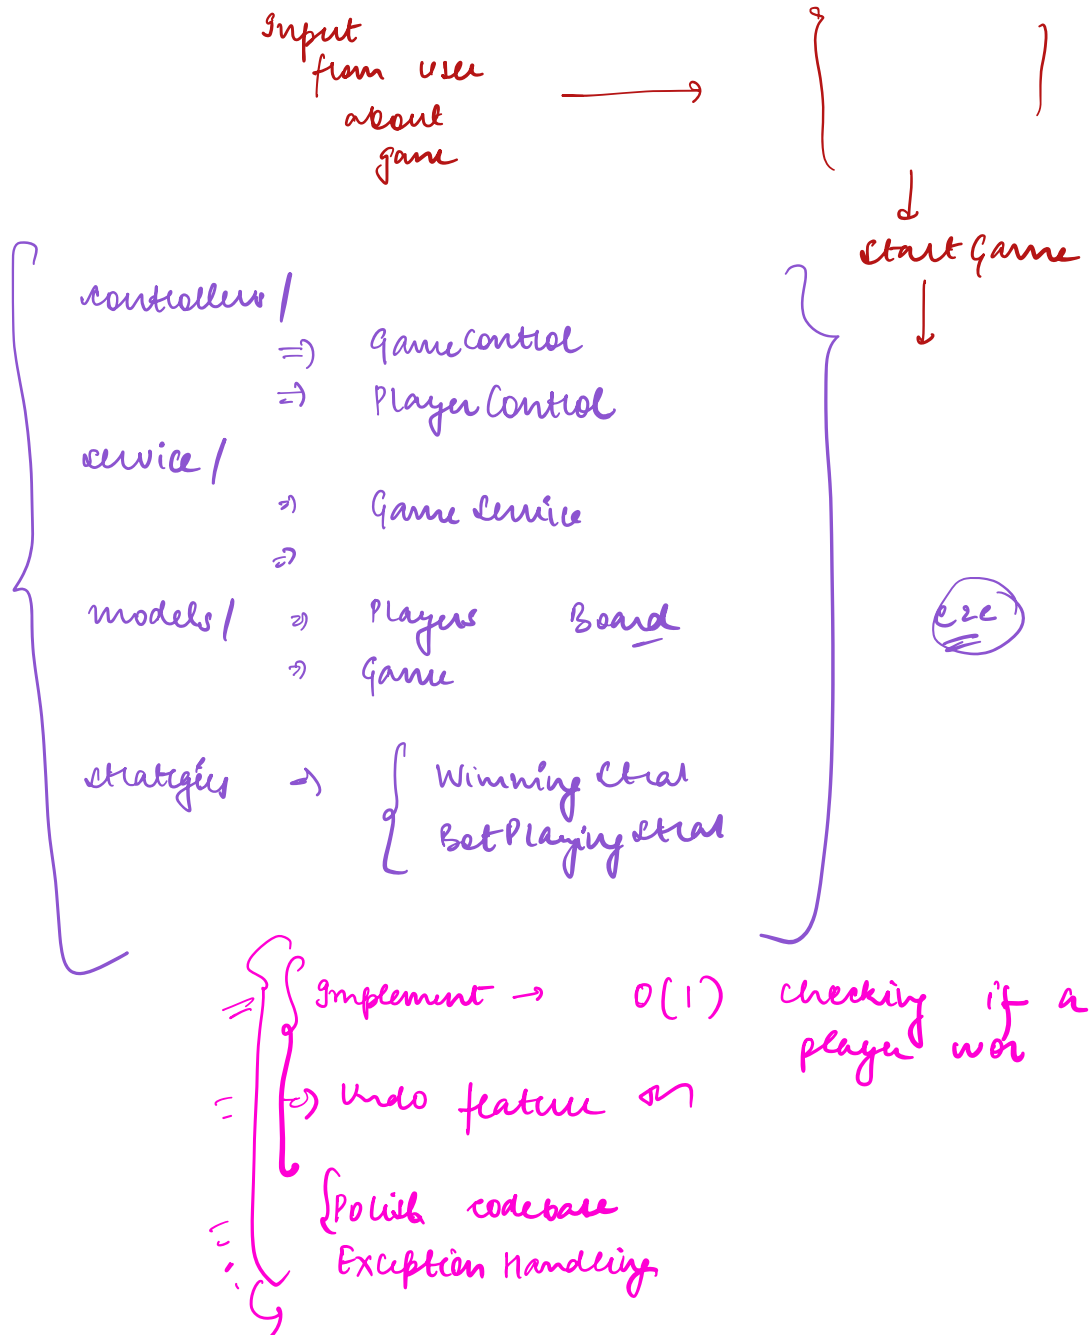 Input
from user
about
game
startGame
controllers/
⇒ GameControl
⇒ PlayerControl
service/
⇒ Game Service
⇒
models/ ⇒ Players Board
⇒ Game
strategies → { Winning Strat
BotPlaying Strat
Implement → O(1) checking if a
player won
⇒ Undo feature
Polish codebase
Exception Handling